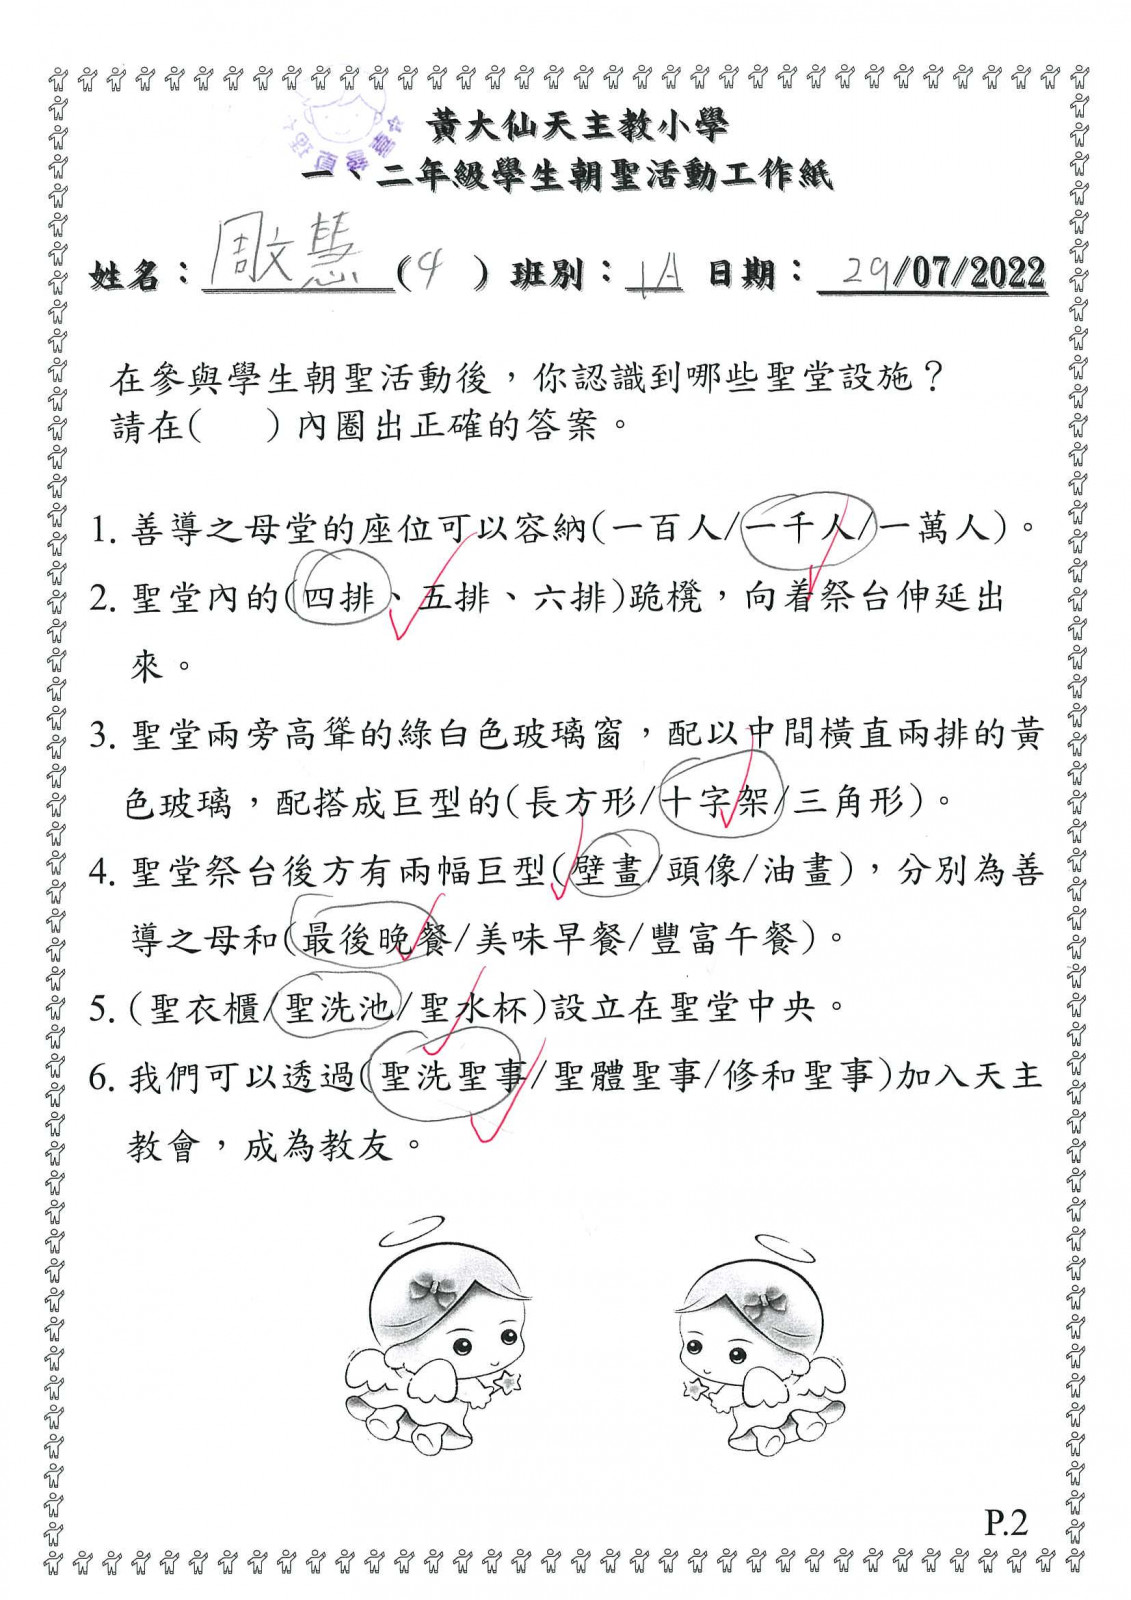 黃大仙天主教小學
一、二年級學生朝聖活動工作紙
姓名：周文慧(4)班別：1A 日期：29/07/2022
在參與學生朝聖活動後，你認識到哪些聖堂設施？
請在(    )內圈出正確的答案。
1. 善導之母堂的座位可以容納(一百人/一千人/一萬人)。
2. 聖堂內的(四排、五排、六排)跪櫈，向着祭台伸延出
來。
3. 聖堂兩旁高聳的綠白色玻璃窗，配以中間橫直兩排的黃
色玻璃，配搭成巨型的(長方形/十字架/三角形)。
4. 聖堂祭台後方有兩幅巨型(壁畫/頭像/油畫)，分別為善
導之母和(最後晚餐/美味早餐/豐富午餐)。
5. (聖衣櫃/聖洗池/聖水杯)設立在聖堂中央。
6. 我們可以透過(聖洗聖事/聖體聖事/修和聖事)加入天主
教會，成為教友。
P.2